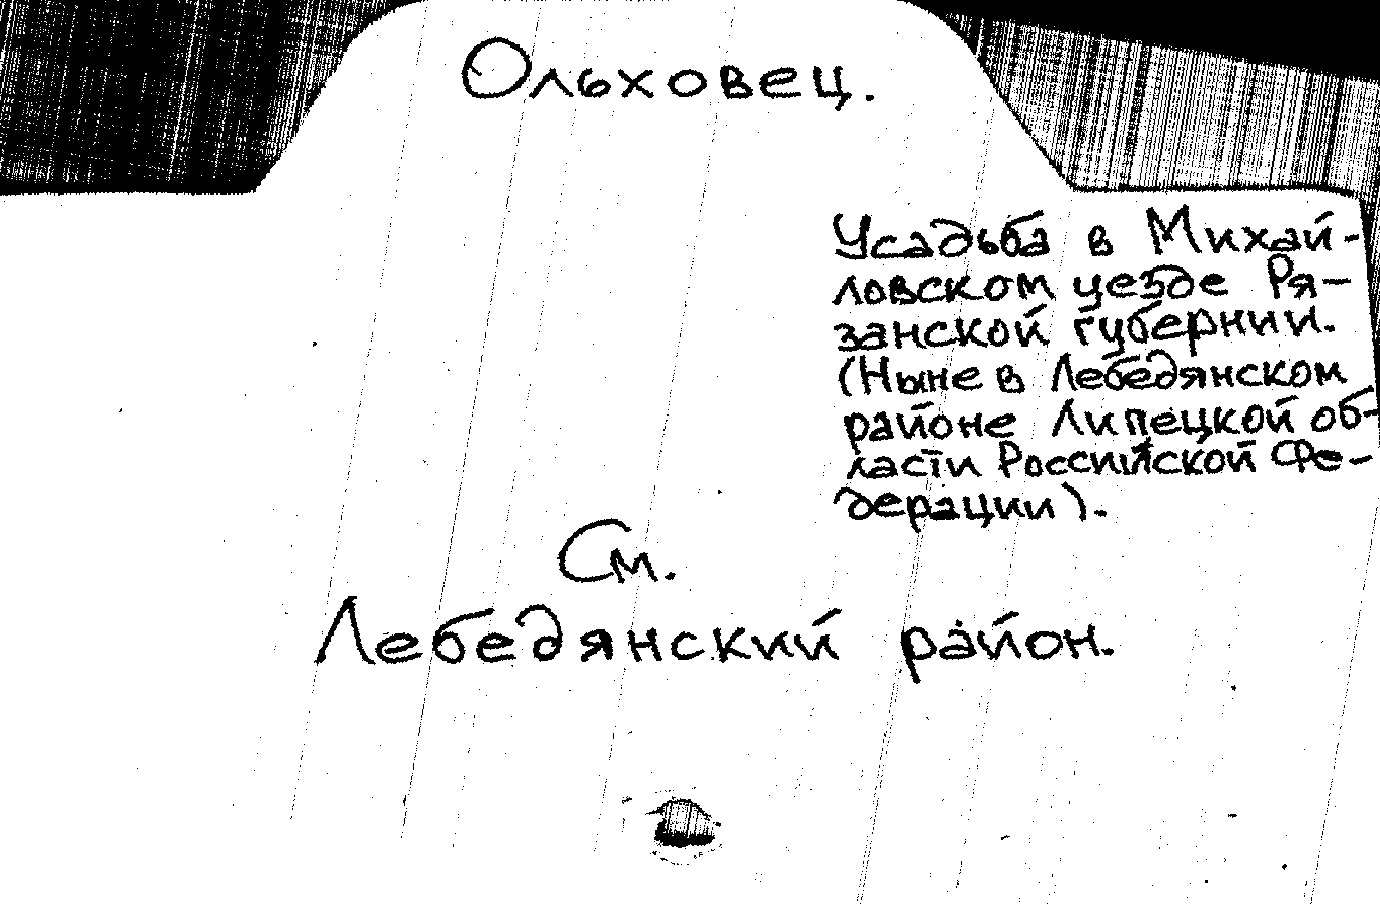 Ольховец.
Усадьба в Михай-
ловском уезде Ря-
занской губернии.
(Ныне в Лебедянском
районе Липецкой об-
ласти Российской Фе-
дерации).
См.
Лебедянский район.